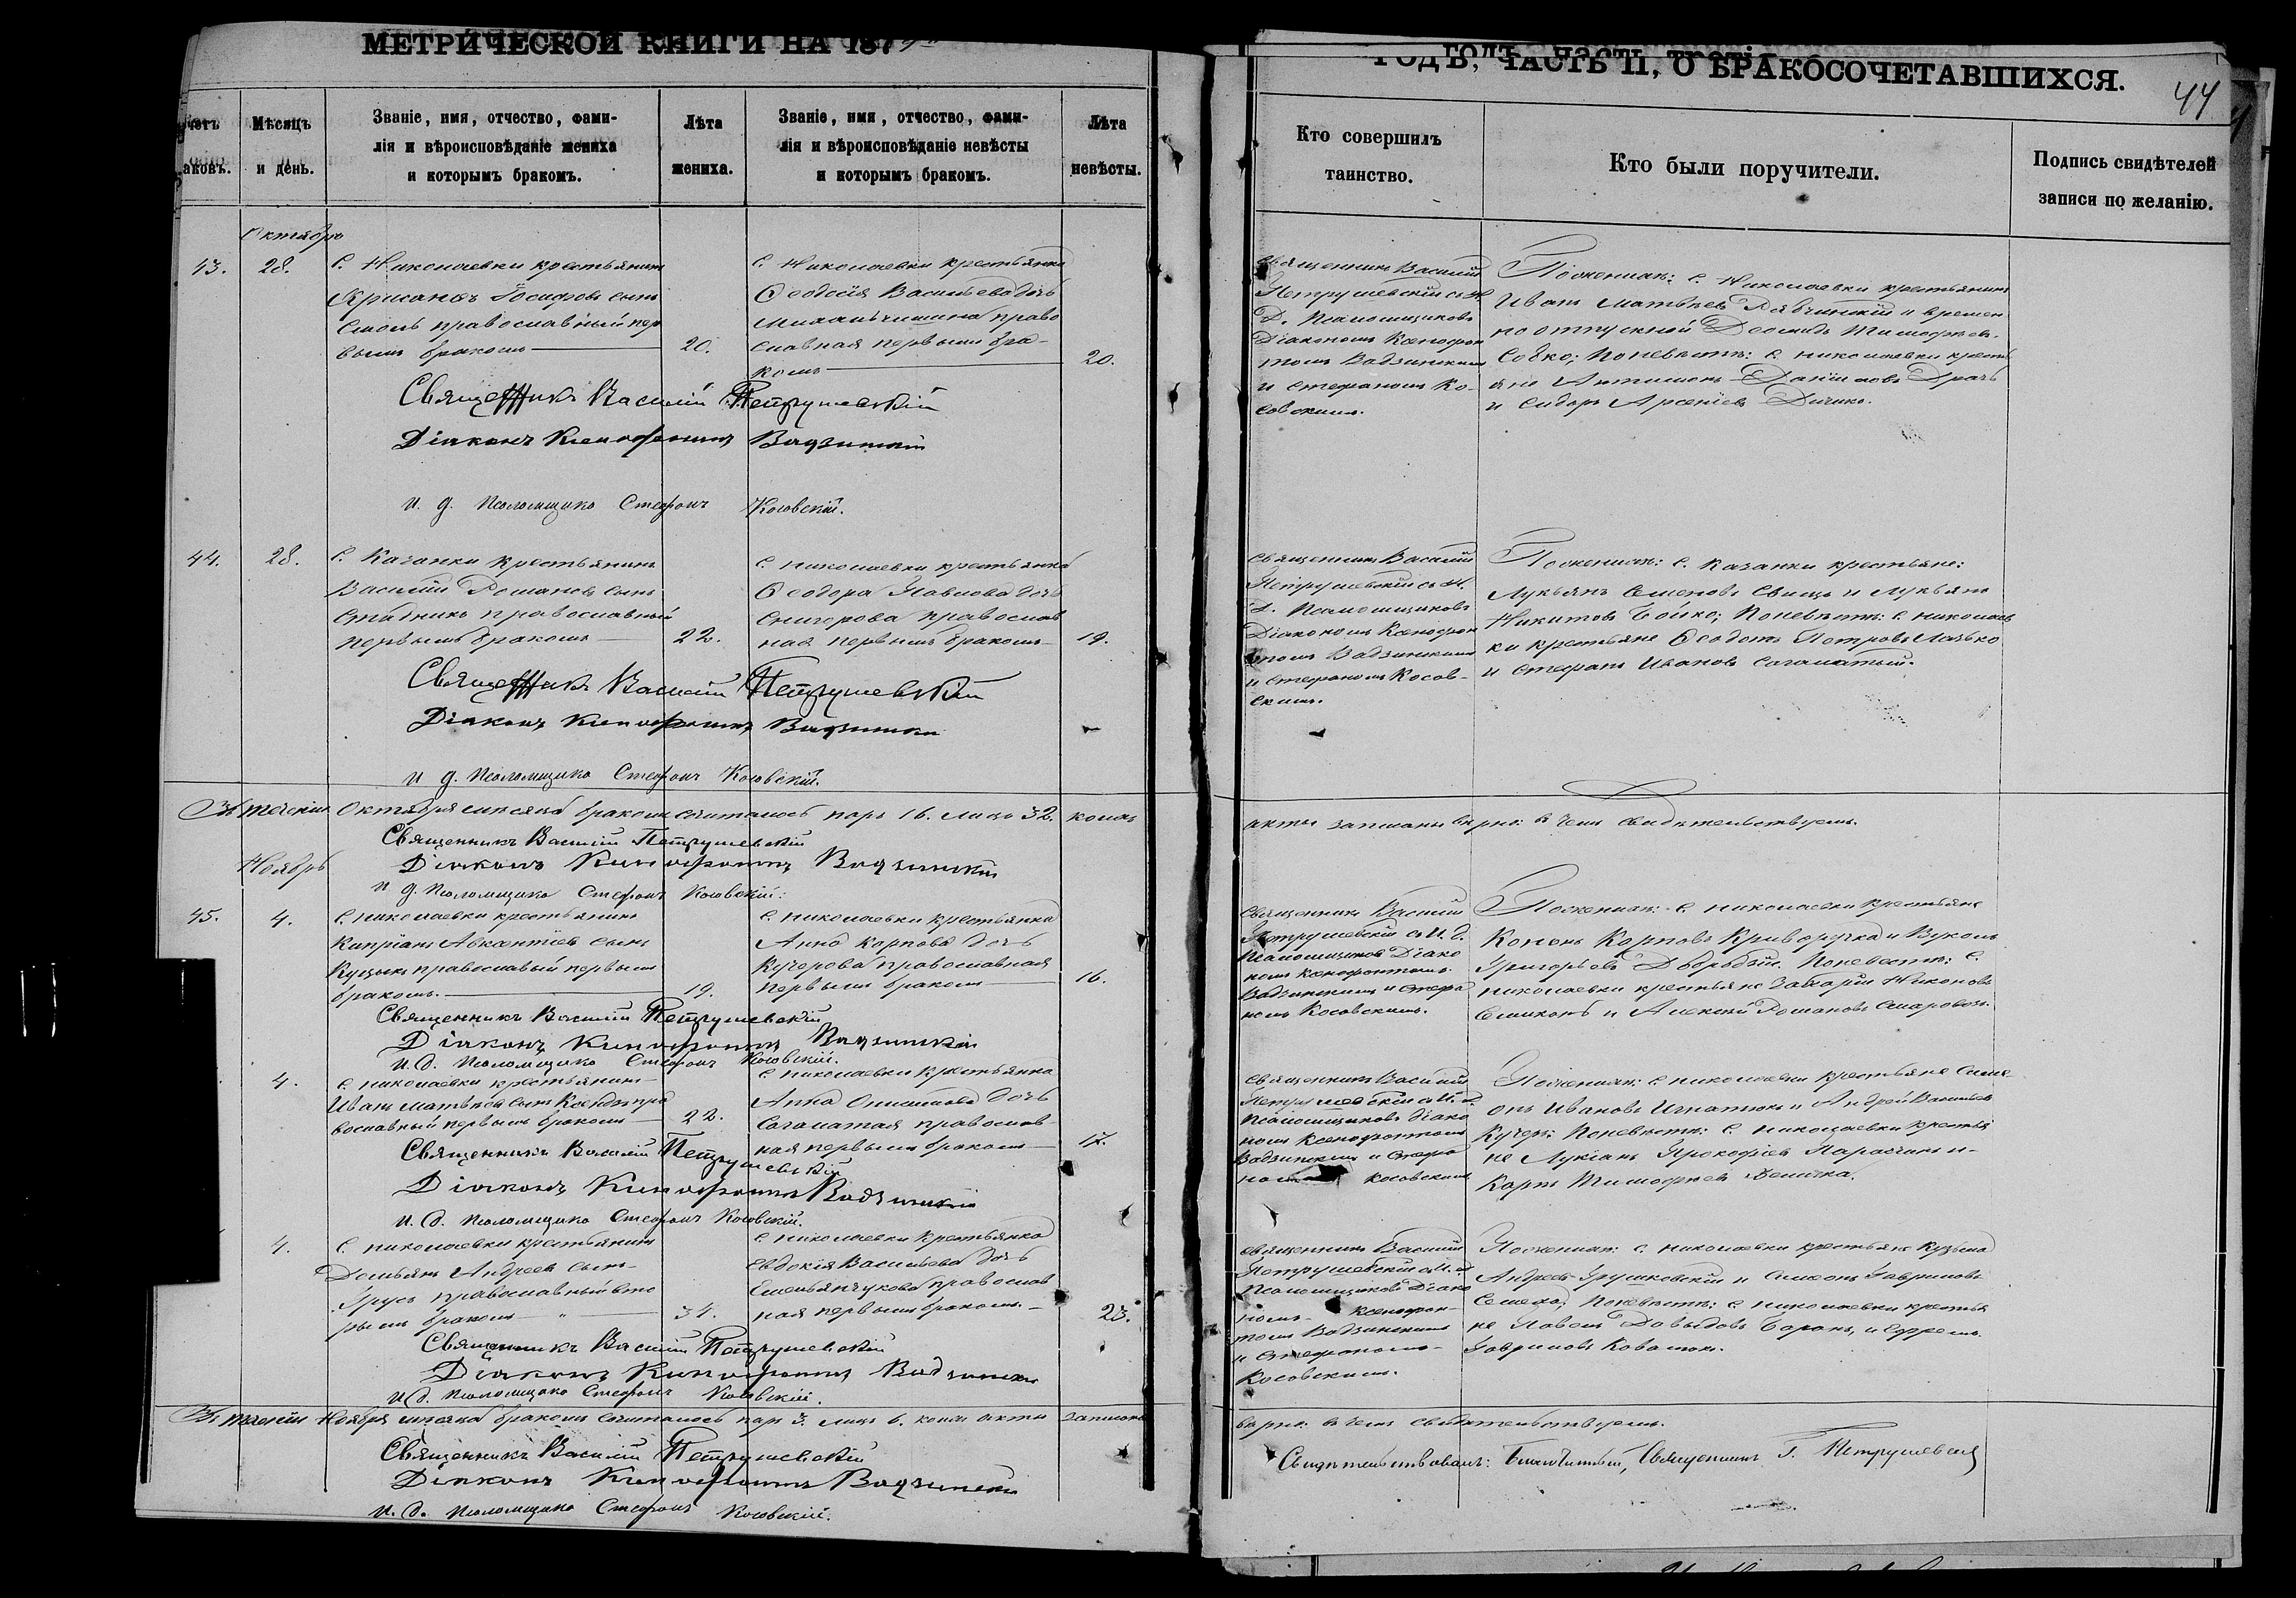 МЕТРИЧЕСКОЙ КНИГИ НА 187
ГОДЪ, ЧАСТЬ II, О БРАКОСОЧЕТАВШИХСЯ.
44
Мѣсяцъ
и день.
Званіе, имя, отчество, фами-
лія и вѣроисповѣданіе жениха
и которымъ бракомъ.
Лѣта
жениха.
Званіе, имя, отчество, фами-
лія и вѣроисповѣданіе невѣсты
и которымъ бракомъ.
Лѣта
невѣсты.
Кто совершилъ
таинство.
Кто были поручители.
Подпись свидѣтелей
записи по желанію.
Октябрь
43.
28.
С. Николаевки крестьянинъ
Іосифовъ сынъ
православный пер
вымъ бракомъ
20.
С. Николаевки крестьянка
Ѳеодосія Васильева дочь
право
славная первымъ бра-
комъ
20.
Священникъ Василій
Петрушевскій съ И.
Д. Псаломщиковъ
Діакономъ Ксенофон
томъ Вадзинскимъ
и Стефаномъ Ко-
совскимъ.
По женихѣ: с. Николаевки крестьянинъ
Иванъ Матвѣевъ и времен
но отпускной Тимофѣевъ
Собко; по невѣстѣ: с. Николаевки кресть
яне Антимонъ Даніиловъ Драчъ
и Сидоръ Арсеніевъ
Священникъ Василій Петрушевскій
Діаконъ Ксенофонтъ Вадзинскій
И. д. Псаломщика Стефанъ Косовскій.
44.
28.
С. Казанки крестьянинъ
Василій Романовъ сынъ
Стадникъ православный
первымъ бракомъ
22.
С. Николаевки крестьянка
Ѳеодора Павлова дочь
Снигорова православ
ная первымъ бракомъ
19.
Священникъ Василій
Петрушевскій съ И.
д. Псаломщиковъ
Діакономъ Ксенофон
томъ Вадзинскимъ
и Стефаномъ Косов-
скимъ.
По женихѣ: с. Казанки крестьяне:
Лукьянъ Семеновъ Свищъ и Лукьянъ
Никитовъ Бойко; по невѣстѣ: с. Николаев
ки крестьяне Ѳеодотъ Петровъ
и Стефанъ Ивановъ Сагаматый.
Священникъ Василій Петрушевскій
Діаконъ Ксенофонтъ Вадзинскій
И. д. Псаломщика Стефанъ Косовскій.
Въ теченіи Октября мѣсяца бракомъ сочиталось паръ 16. лицъ 32. коихъ
акты записаны вѣрно: въ чемъ свидѣтельствуемъ.
Священникъ Василій Петрушевскій
Діаконъ Ксенофонтъ Вадзинскій
И. д. Псаломщика Стефанъ Косовскій.
Ноябрь
45.
4.
С. Николаевки крестьянинъ
Кипріанъ Авксентіевъ сынъ
православный первымъ
бракомъ.
19.
С. Николаевки крестьянка
Анна Карпова дочь
Кучерова православная
первымъ бракомъ
16.
Священникъ Василій
Петрушевскій съ И. д.
Псаломщиковъ Діако
номъ Ксенофонтомъ
Вадзинскимъ и Стефа
номъ Косовскимъ.
По женихѣ: с. Николаевки крестьяне
Кононъ Карповъ Криворучка и Вуколъ
Григорьевъ. По невѣстѣ: с.
Николаевки крестьяне Никоновъ
и Алексій Романовъ
Священникъ Василій Петрушевскій
Діаконъ Ксенофонтъ Вадзинскій
И. д. Псаломщика Стефанъ Косовскій.
4.
С. Николаевки крестьянинъ
Иванъ Матвѣевъ сынъ Ксендзъ пра
вославный первымъ бракомъ
22.
С. Николаевки крестьянка
Анна Онисимова дочь
Сагаматая православ-
ная первымъ бракомъ
17.
Священникъ Василій
Петрушевскій съ И. д.
Псаломщиковъ Діако
номъ Ксенофонтомъ
Вадзинскимъ и Стефа
номъ Косовскимъ
По женихѣ: с. Николаевки крестьяне Симе-
онъ Ивановъ Игнатюкъ и Андрей Васильевъ
Кучеръ: по невѣстѣ: с. Николаевки крестья
не Лукіанъ Прокофіевъ и
Карпъ Тимофѣевъ
Священникъ Василій Петрушевскій
Діаконъ Ксенофонтъ Вадзинскій
И. д. Псаломщика Стефанъ Косовскій.
4.
С. Николаевки крестьянинъ
Демьянъ Андреевъ сынъ
православный вто
рымъ бракомъ
34.
С. Николаевки крестьянка
Евдокія Васильева дочь
Емельянчукова православ
ная первымъ бракомъ.
23.
Священникъ Василій
Петрушевскій съ И. д.
Псаломщиковъ Діако
номъ Ксенофон-
томъ Вадзинскимъ
и Стефаномъ
Косовскимъ.
По женихѣ: с. Николаевки крестьяне Кузьма
Андреевъ Грушковскій и Симеонъ Гавриловъ
по невѣстѣ: с. Николаевки крестья
не Павелъ Давыдовъ Баранъ, и Ефремъ
Гавриловъ Ковалюкъ.
Священникъ Василій Петрушевскій
Діаконъ Ксенофонтъ Вадзинскій
И. д. Псаломщика Стефанъ Косовскій.
Въ теченіи Ноября мѣсяца бракомъ сочиталось паръ 3. лицъ 6. коихъ акты записаны
вѣрно: въ чемъ свидѣтельствуемъ.
Священникъ Василій Петрушевскій
Діаконъ Ксенофонтъ Вадзинскій
И. д. Псаломщика Стефанъ Косовскій.
Свидѣтельствовалъ: Благочинный, Священникъ Г. Петрушевскій